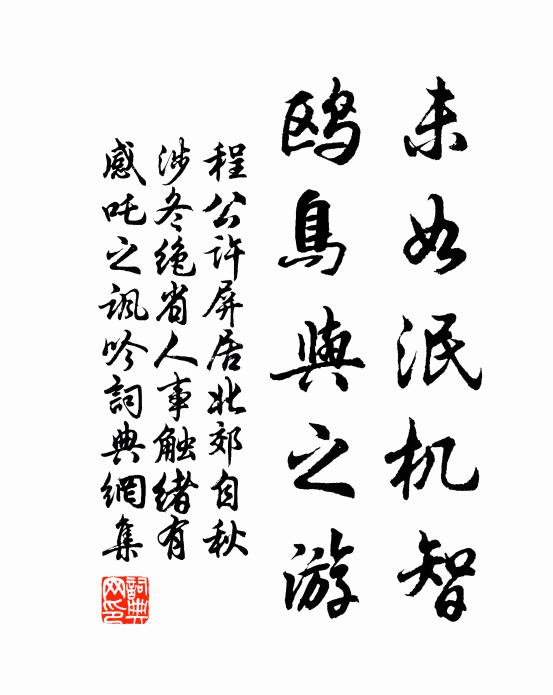 未如泯机智
鸥鳥與之游
程公许屏居北郊自秋
涉冬绝省人事触绪有
感吒之讽吟詞典網集
詞典網印